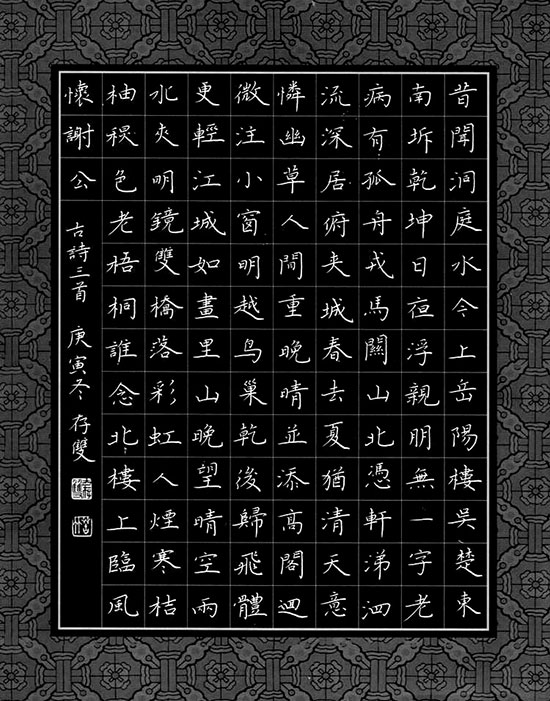 昔聞洞庭水今上岳陽樓吳楚東
南坼乾坤日夜浮親朋無一字老
病有孤舟戎馬關山北憑軒涕泗
流深居俯夹城春去夏猶清天意
憐幽草人間重晚晴並添高閣迥
微注小窗明越鸟巢乾後歸飛體
更輕江城如畫里山晚望晴空雨
水夹明鏡雙橋落彩虹人煙寒桔
柚秋色老梧桐誰念北樓上臨風
懷謝公
古詩三首 庚寅冬 存雙